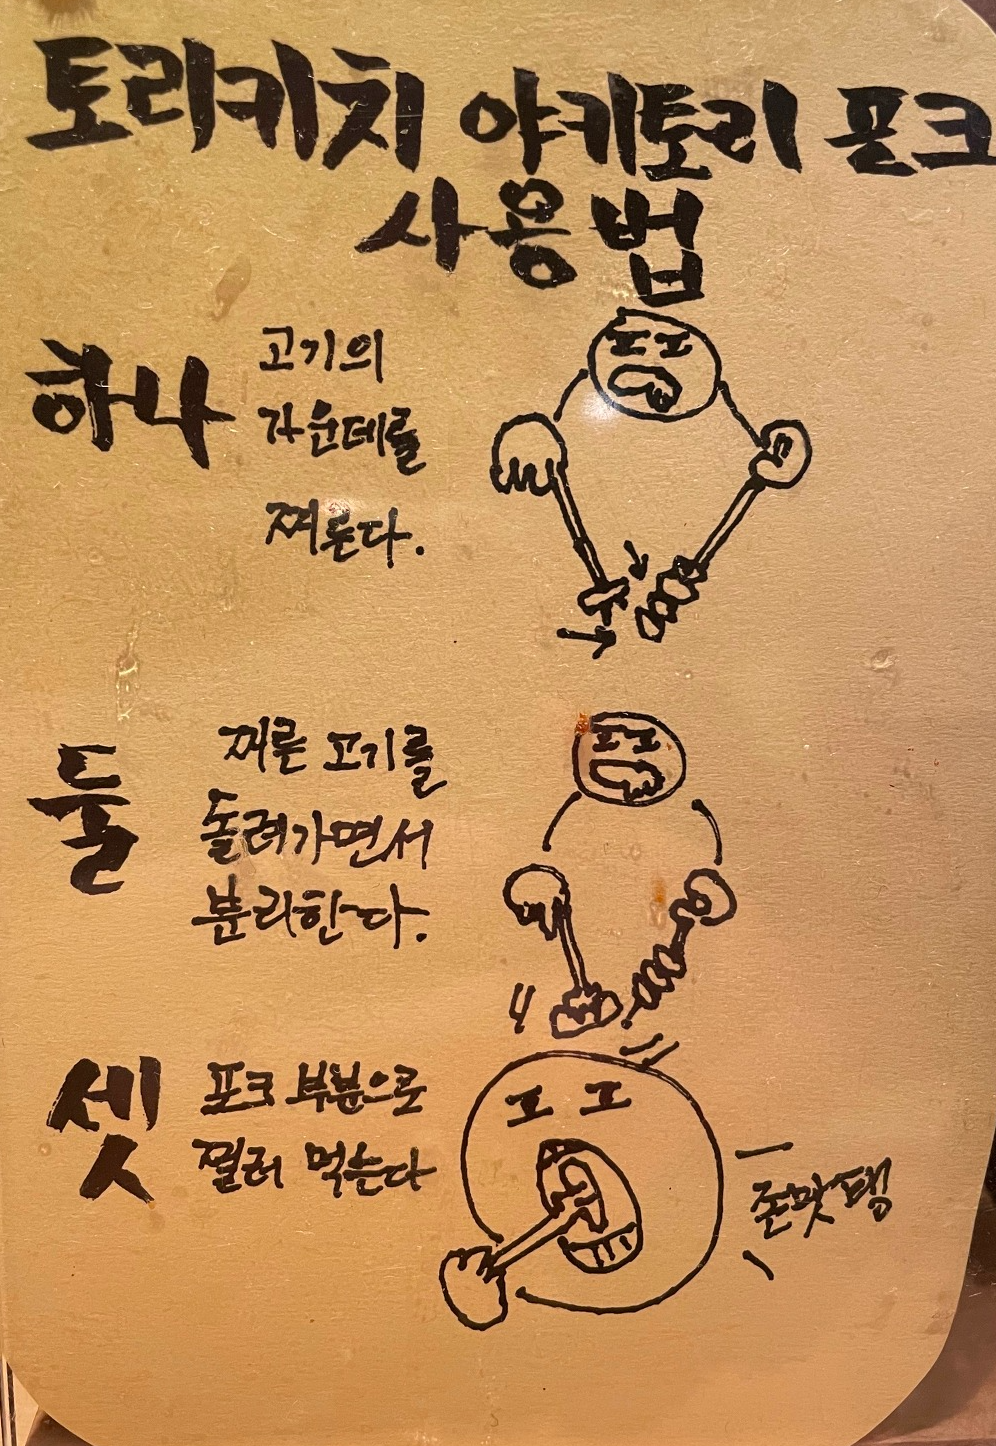 토리키치 야키토리 포크
사용법
하나
고기의
가운데를
찌른다.
둘
찌른 고기를
돌려가면서
분리한다.
셋
포크 부분으로
찔러 먹는다
존맛탱